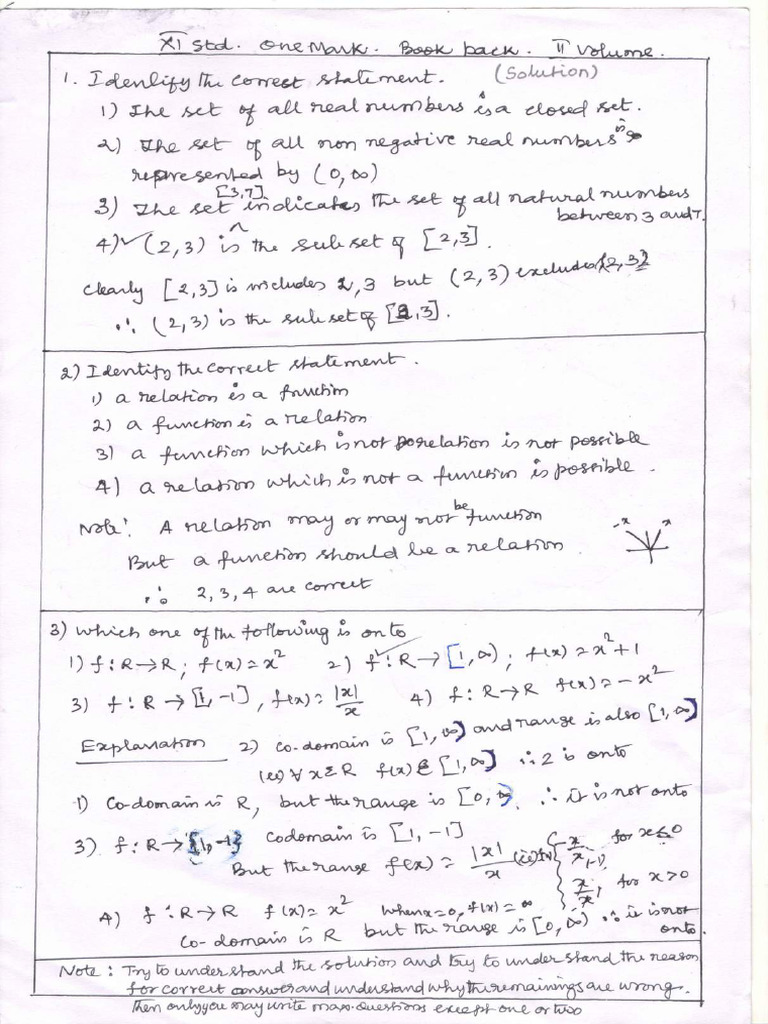 XI Std. One Mark. Book back. II Volume.
1. Identify the correct statement. (Solution)
1) The set of all real numbers is a closed set.
2) The set of all non negative real numbers is
represented by (0, ∞)
3) The set [3,7] indicates the set of all natural numbers
between 3 and 7.
4) ✓ (2,3) is the subset of [2,3].
Clearly [2,3] is includes 2,3 but (2,3) excludes {2,3}
∴ (2,3) is the subset of [2,3].
2) Identify the correct statement.
1) a relation is a function
2) a function is a relation
3) a function which is not relation is not possible
4) a relation which is not a function is possible.
Note! A relation may or may not be function
-x x
But a function should be a relation.
∴ 2, 3, 4 are correct
3) which one of the following is onto
1) f: R→R; f(x) = x² 2) ✓ f: R→ [1,∞); f(x) = x²+1
3) f: R → [1,-1], f(x) = |x|/x 4) f: R→R f(x) = -x²
Explanation 2) Co-domain is [1,∞) and range is also [1,∞)
(ie) ∀ x∈R f(x) ∈ [1,∞) ∴ 2 is onto
1) Co-domain is R, but the range is [0, ∞). ∴ it is not onto
3) f: R→ {1,-1} codomain is [1,-1]
But the range f(x) = |x|/x (ie) { -x/x (-1) for x≤0
x/x 1 for x>0
4) f: R→R f(x) = x² when x=0, f(x) = ∞
Co-domain is R but the range is [0,∞) ∴ it is not
onto.
Note: Try to understand the solution and try to understand the reason
for correct answer and understand why the remainings are wrong.
Then only you may write max. questions except one or two